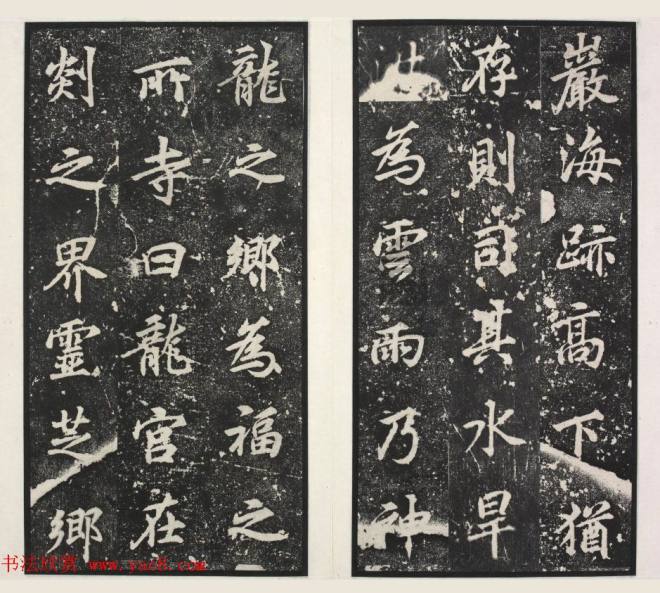 巖海跡高下猶
存則其水旱
為雲雨乃神
龍之鄉為福之
所寺曰龍宮在
剡之界靈芝鄉
书法欣赏 www.yac8.com